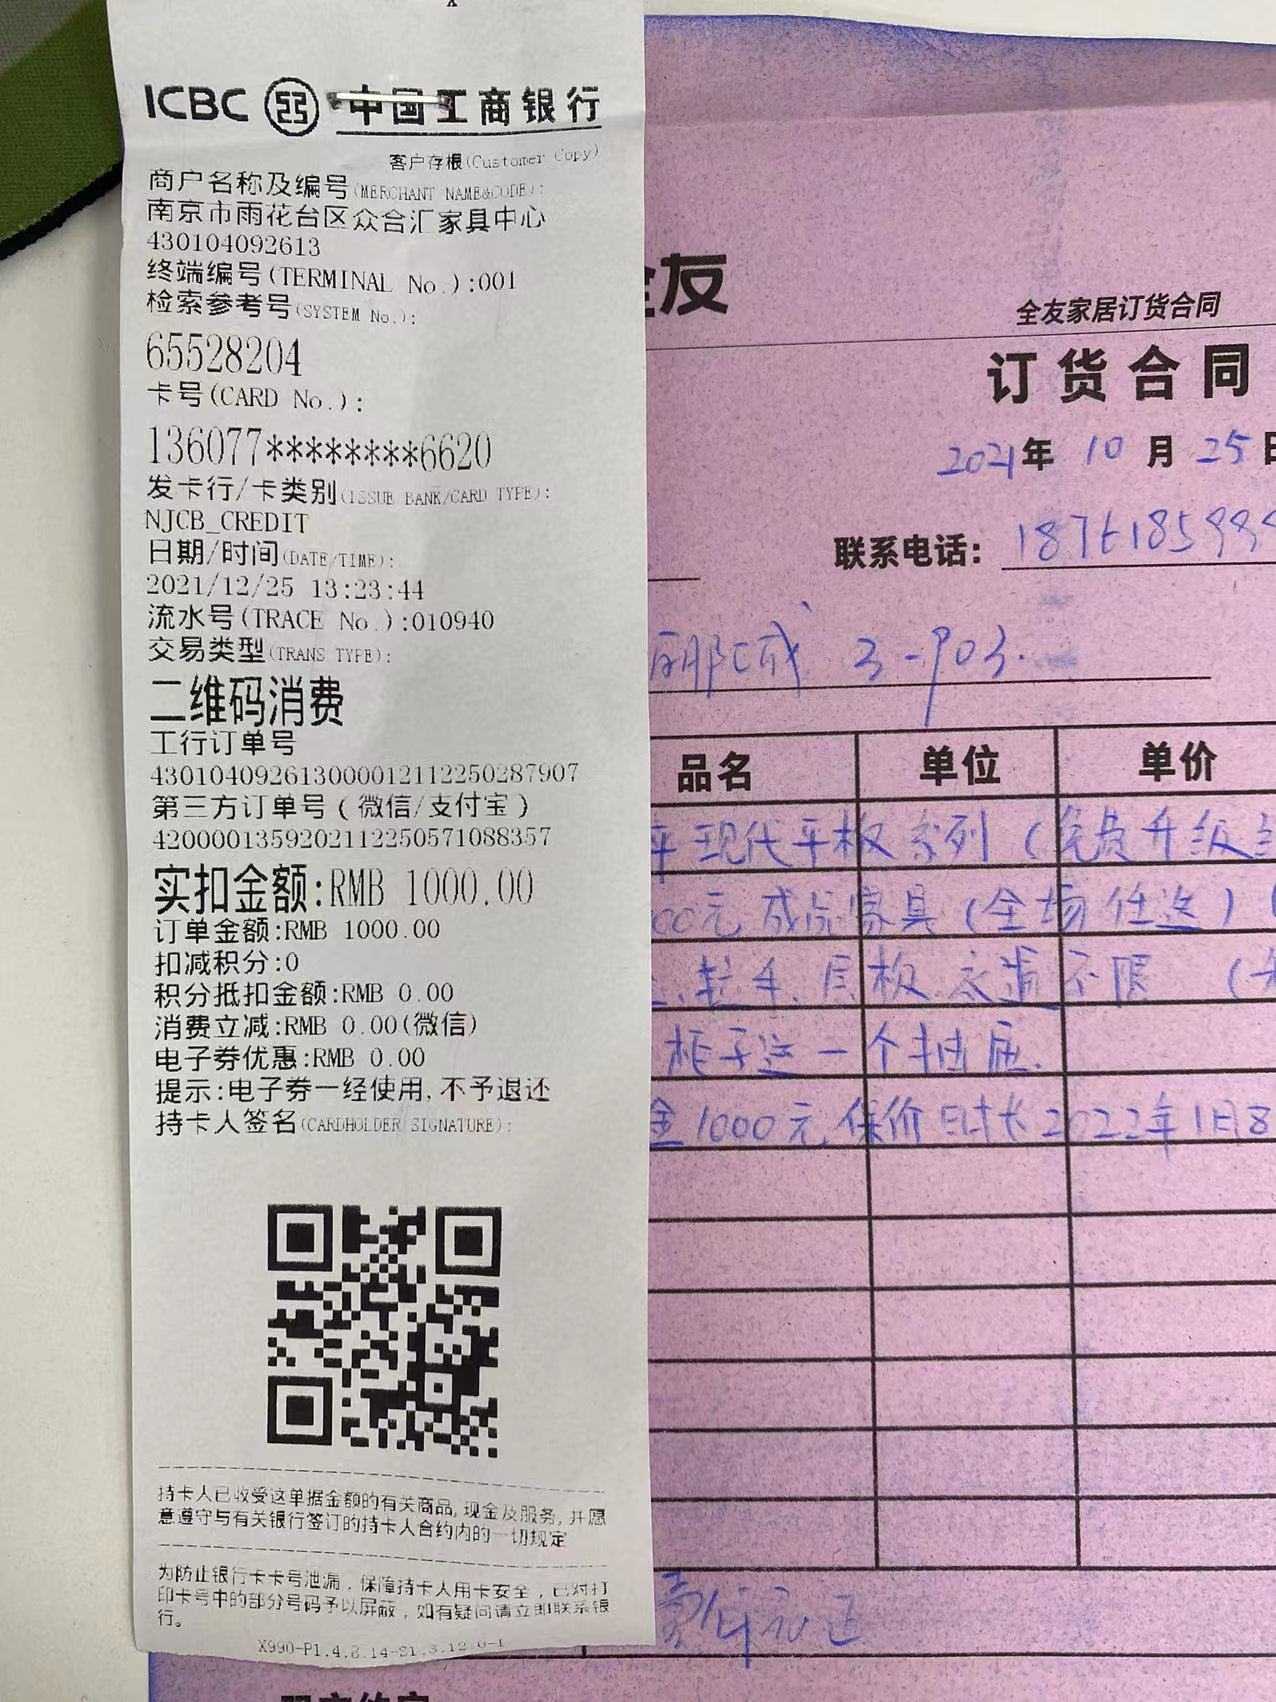 ICBC 中国工商银行
客户存根(Customer Copy)
商户名称及编号(MERCHANT NAME&CODE):
南京市雨花台区众合汇家具中心
430104092613
终端编号(TERMINAL No.):001
检索参考号(SYSTEM No.):
65528204
卡号(CARD No.):
136077********6620
发卡行/卡类别(ISSUE BANK/CARD TYPE):
NJCB_CREDIT
日期/时间(DATE/TIME):
2021/12/25 13:23:44
流水号(TRACE No.):010940
交易类型(TRANS TYPE):
二维码消费
工行订单号
430104092613000012112250287907
第三方订单号(微信/支付宝)
4200001359202112250571088357
实扣金额:RMB 1000.00
订单金额:RMB 1000.00
扣减积分:0
积分抵扣金额:RMB 0.00
消费立减:RMB 0.00(微信)
电子券优惠:RMB 0.00
提示:电子券一经使用,不予退还
持卡人签名(CARDHOLDER SIGNATURE):
持卡人已收受这单据金额的有关商品,现金及服务,并愿
意遵守与有关银行签订的持卡人合约内的一切规定
为防止银行卡卡号泄漏,保障持卡人用卡安全,已对打
印卡号中的部分号码予以屏蔽,如有疑问请立即联系银
行。
友
全友家居订货合同
订货合同
2021年 10月 25日
联系电话:
3-903.
品名 单位 单价
现代平板系列(免费升级
00元 成品家具(全场任选)
拉手、层板、衣通不限
柜子送一个抽屉.
金1000元,保价时长2022年1月8